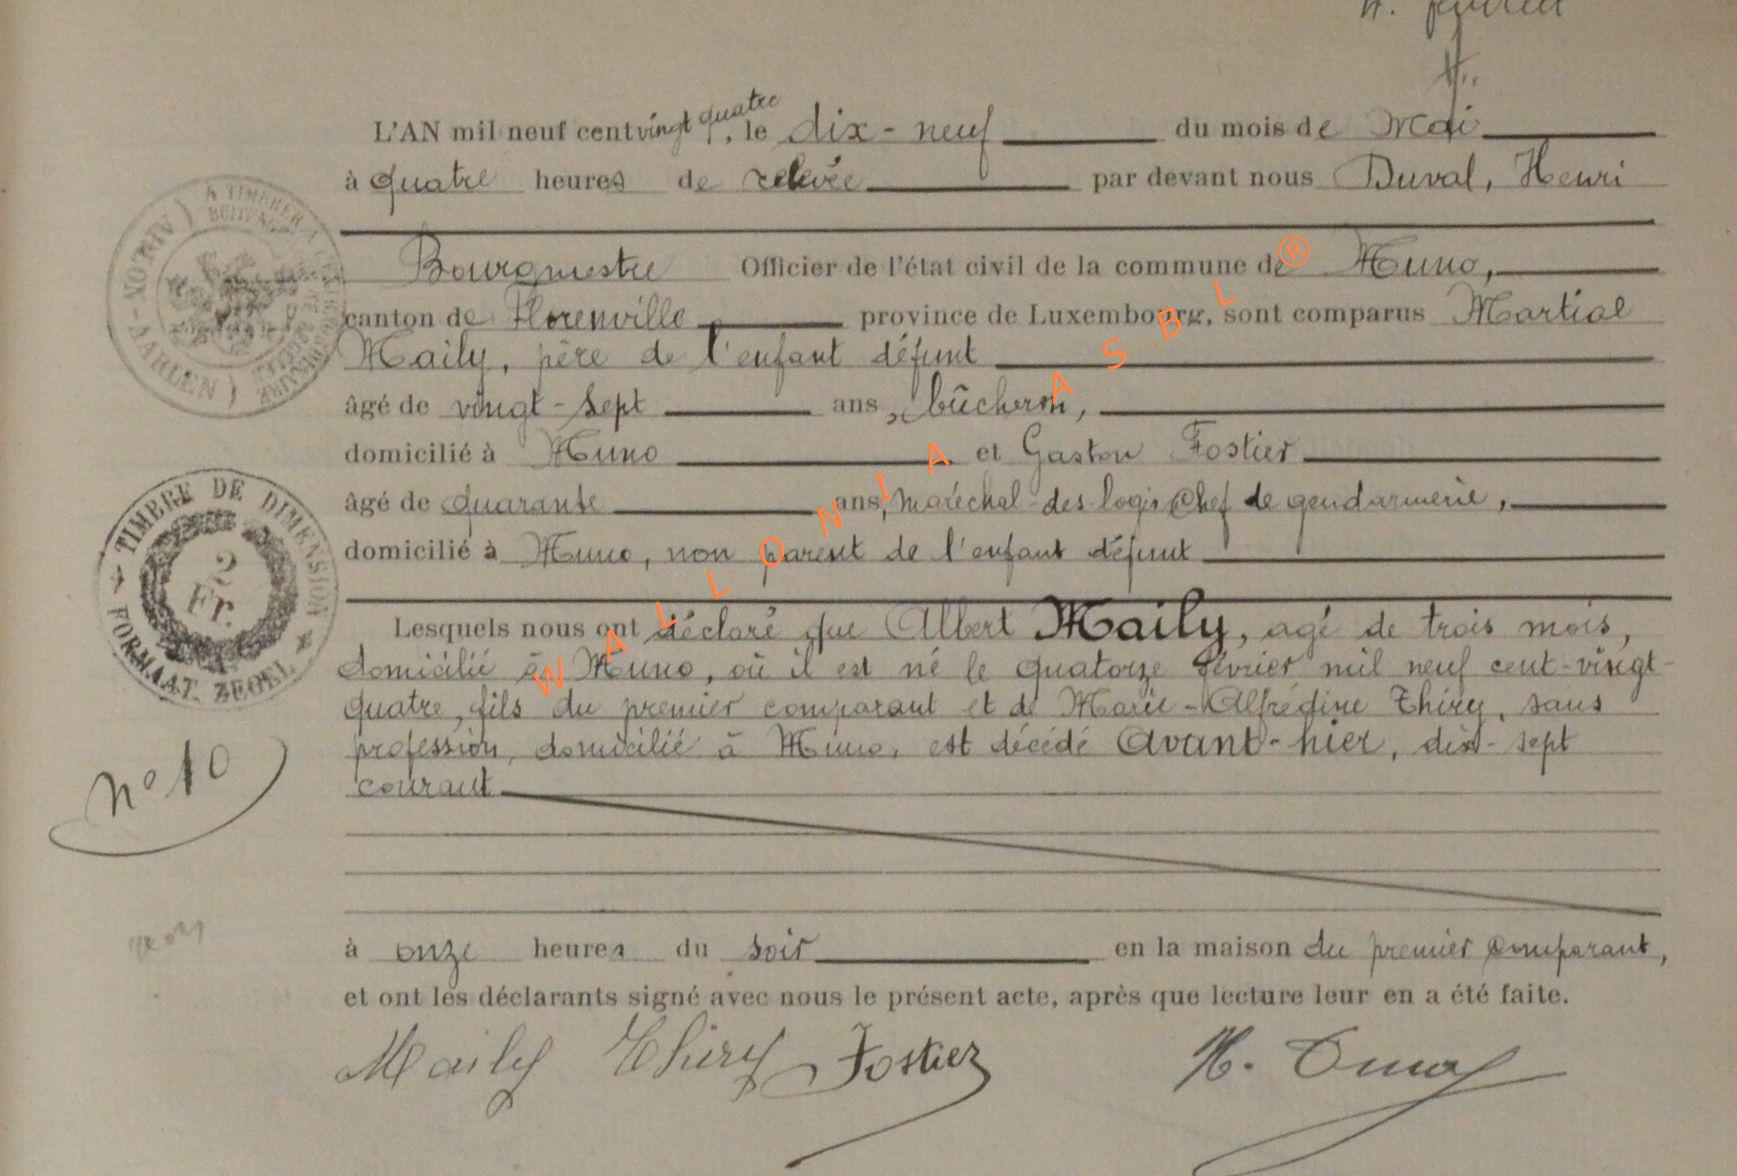 L'AN mil neuf cent vingt quatre, le dix-neuf du mois de Mai
à quatre heures de relevée par devant nous Duval, Henri
Bourgmestre Officier de l'état civil de la commune de Muno,
canton de Florenville province de Luxembourg, sont comparus Martial
Maily, père de l'enfant défunt
âgé de vingt-sept ans, bûcheron,
domicilié à Muno et Gaston Fostier
âgé de quarante ans, maréchal-des-logis Chef de gendarmerie,
domicilié à Muno, non parent de l'enfant défunt
Lesquels nous ont déclaré que Albert Maily, agé de trois mois,
domicilié à Muno, où il est né le quatorze février mil neuf cent-vingt-
quatre, fils du premier comparant et de Marie-Alfrédine Thiry, sans
profession, domicilié à Muno, est décédé avant-hier, dix-sept
courant
à onze heures du soir en la maison du premier comparant,
et ont les déclarants signé avec nous le présent acte, après que lecture leur en a été faite.
Maily Thiry Fostier H. Duval
n° 10
TIMBRE DE DIMENSION
2
Fr.
FORMAAT ZEGEL
WALLONIA ASBL ®